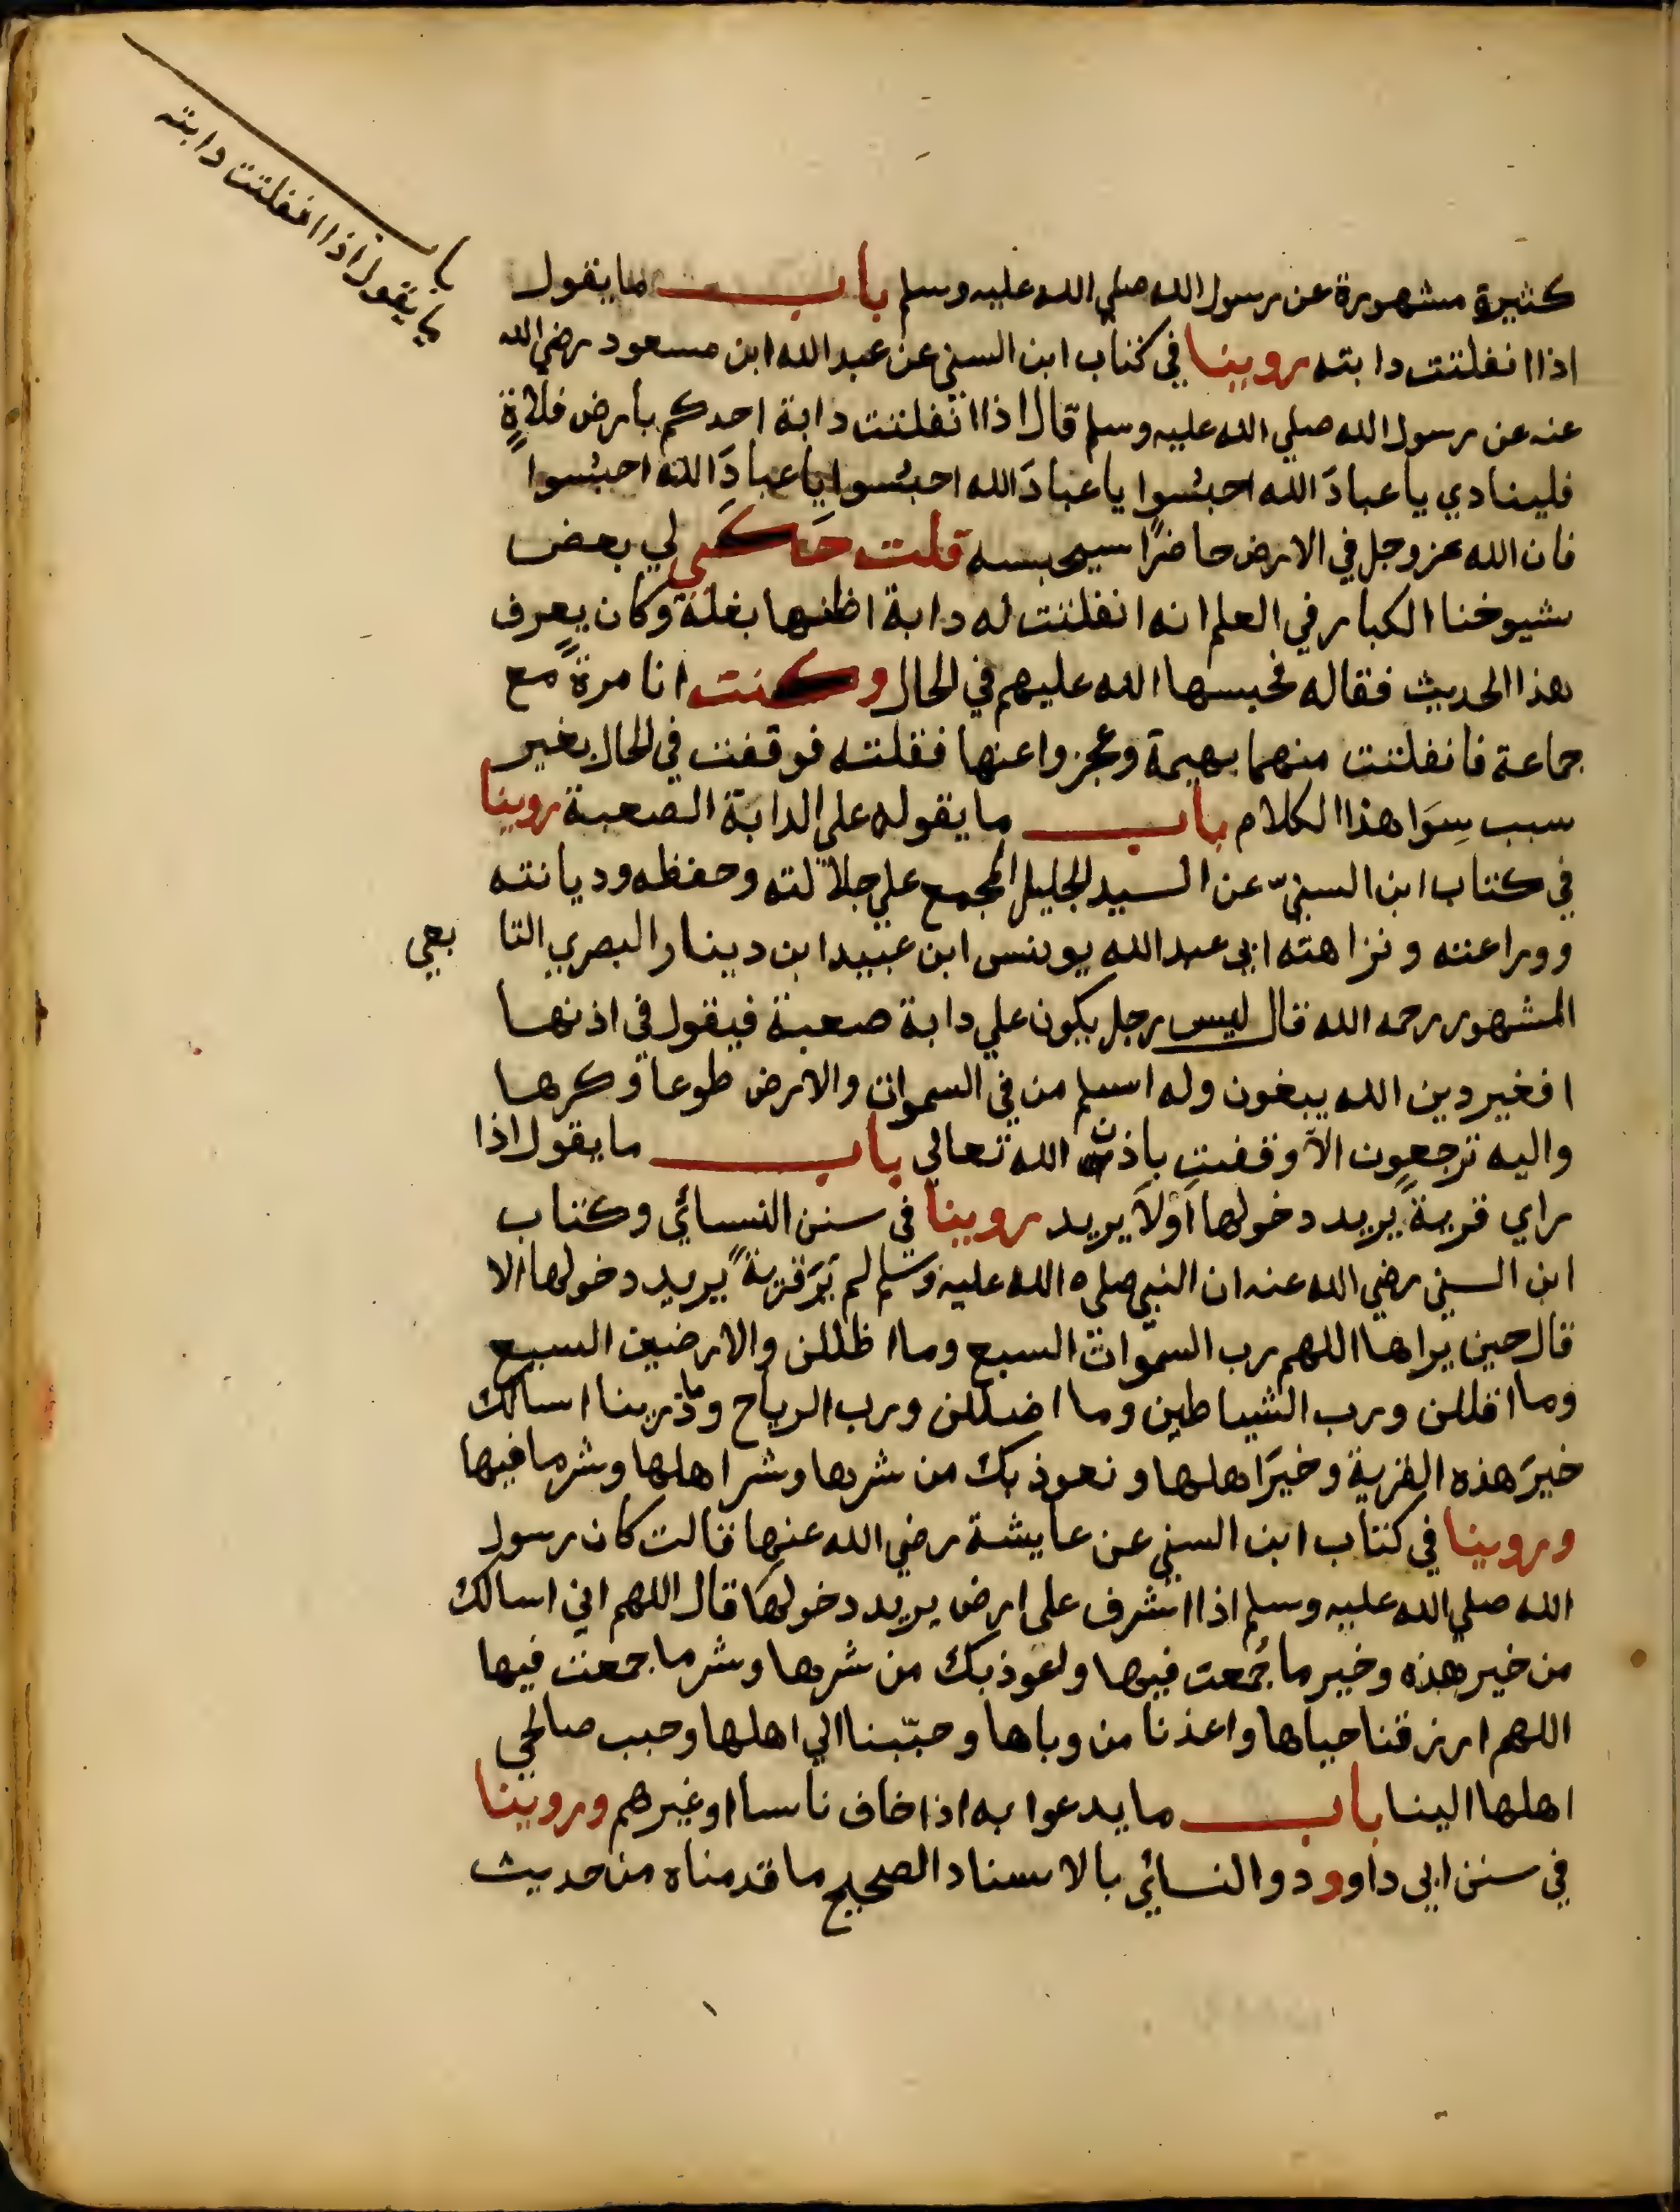 باب
ما يقول اذا انفلتت دابته
كثيرة مشهورة عن رسول الله صلي الله عليه وسلم باب ما يقول
اذا انفلتت دابته روينا في كتاب ابن السني عن عبد الله ابن مسعود رضي الله
عنه عن رسول الله صلي الله عليه وسلم قال اذا انفلتت دابة احدكم بأرض فلاةٍ
فلينادي يا عبادَ الله احبسُوا يا عبادَ الله احبسُوا يا عبادَ الله احبسُوا
فان الله عز وجل في الارض حاضرًا سيحبسه قلت حَكَي لي بعض
شيوخنا الكبار في العلم انه انفلتت له دابة اظنها بغلة وكان يعرف
هذا الحديث فقاله فحبسها الله عليهم في الحال وكنت انا مرةً مع
جماعة فانفلتت منهما بهيمة وعجزوا عنها فقلته فوقفت في الحال بغير
سبب سِوَا هذا الكلام باب ما يقوله علي الدابة الصعبة روينا
في كتاب ابن السنيّ عن السيد الجليل المجمع علي جلالته وحفظه وديانته
وورراعته ونزاهته ابي عبد الله يوينس ابن عبيد ابن دينار البصري التا بعي
المشهور رحمه الله قال ليس رجل يكون علي دابة صعبة فيقول في اذنها
افغير دين الله يبغون وله اسلم من في السموات والارض طوعا وكرها
واليه ترجعون الا وقفت باذن الله تعالي باب ما يقول اذا
راي قريةً يريد دخولها أوْلَا يريد روينا في سنن النسائي وكتاب
ابن السني رضي الله عنه ان النبي صلي الله عليه وسلم لم يَرَ قريةً يريد دخولها الا
قال حين يراها اللهم رب السموات السبع وما اظللن والارضين السبع
وما اقللن ورب الشياطين وما اضللن ورب الرياح وما ذرينا اسالك
خيرَ هذه القرية وخيرَ اهلها ونعوذ بك من شرها وشر اهلها وشر ما فيها
وروينا في كتاب ابن السني عن عايشة رضي الله عنها قالت كان رسول
الله صلي الله عليه وسلم اذا اشرف علي ارض يريد دخولها قال اللهم اني اسالك
من خير هذه وخير ما جُمعت فيها واعوذ بك من شرها وشر ما جمعت فيها
اللهم ارزقنا حياها واعذنا من وباها وحبّبنا الي اهلها وحبب صالحي
اهلها الينا باب ما يدعوا به اذا خاف ناسا او غيرهم وروينا
في سنن ابي داوود والنسائي بالاسناد الصحيح ما قدمناه من حديث